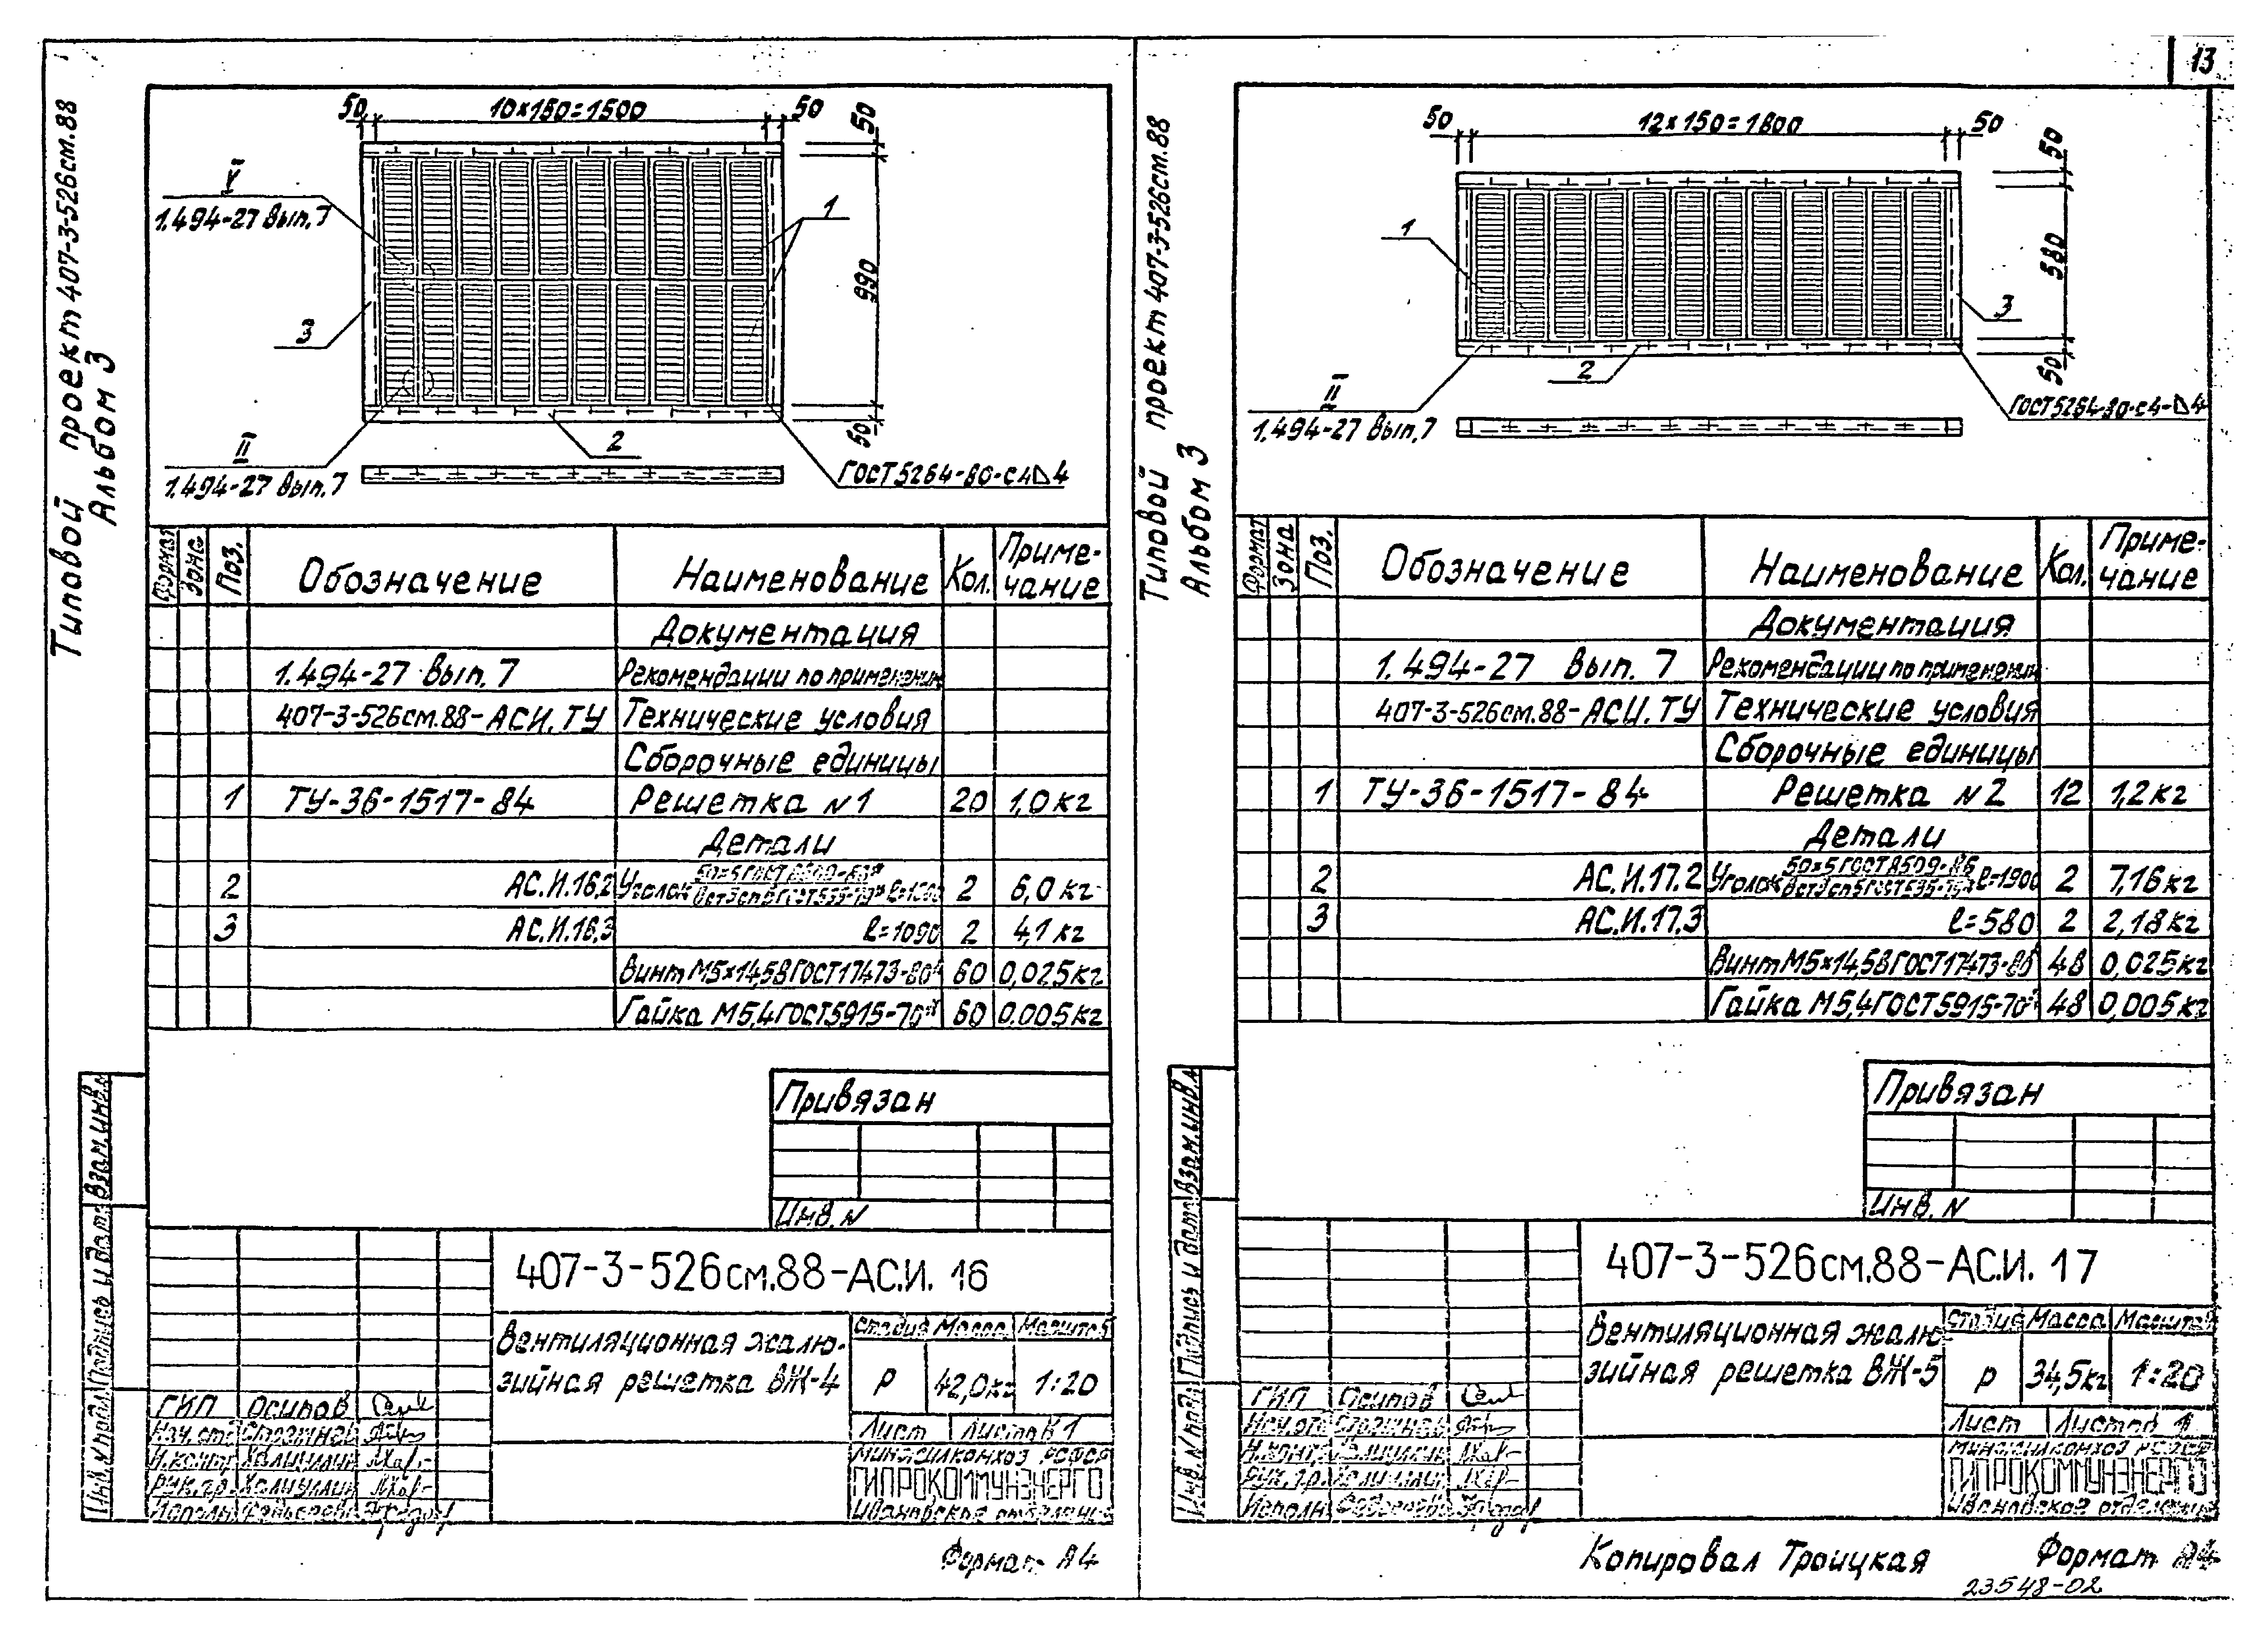 13
Типовой проект 407-3-526см.88
Альбом 3
50
10×150=1500
50
50
V
1.494-27 Вып.7
1
990
3
II
1.494-27 Вып.7
2
50
ГОСТ 5264-80-С4 4
Формат
Зона
Поз.
Обозначение
Наименование
Кол.
Приме-
чание
Документация
1.494-27 Вып. 7 Рекомендации по применению
407-3-526см.88-АСИ.ТУ Технические условия
Сборочные единицы
1 ТУ-36-1517-84 Решетка N1 20 1,0кг
Детали
2 АС.И.16.2 Уголок 2 6,0кг
3 АС.И.16.3 ℓ=1090 2 4,1кг
Винт М5×14,58 ГОСТ17473-80 60 0,025кг
Гайка М5,4 ГОСТ5915-70* 60 0.005кг
Привязан
Инв. N
407-3-526см.88-АС.И. 16
Вентиляционная жалю-
зийная решетка ВЖ-4
Стадия Масса Масштаб
Р 42,0кг 1:20
Лист Листов 1
ГИП Осипов
Нач. отд.
Н.контр. Халиуллин
Рук.гр. Халиуллин
Исполн.
Минжилкомхоз РСФСР
ГИПРОКОММУНЭНЕРГО
Ивановское отделение
Взам.инв.N
Подпись и дата
Инв.N подл.
Формат А4
Типовой проект 407-3-526см.88
Альбом 3
50
12×150=1800
50
50
1
580
3
2
50
II
1.494-27 Вып.7
ГОСТ 5264-80-С4- 4
Формат
Зона
Поз.
Обозначение
Наименование
Кол.
Приме-
чание
Документация
1.494-27 Вып. 7 Рекомендации по применению
407-3-526см.88-АСИ.ТУ Технические условия
Сборочные единицы
1 ТУ-36-1517-84 Решетка N2 12 1,2кг
Детали
2 АС.И.17.2 Уголок 50×5 ГОСТ 8509-86 ℓ=1900 2 7,16кг
3 АС.И.17.3 ℓ=580 2 2,18кг
Винт М5×14,58 ГОСТ17473-80 48 0,025кг
Гайка М5,4 ГОСТ5915-70* 48 0,005кг
Привязан
Инв. N
407-3-526см.88-АС.И. 17
Вентиляционная жалю-
зийная решетка ВЖ-5
Стадия Масса Масштаб
Р 34,5кг 1:20
Лист Листов 1
ГИП Осипов
Нач. отд.
Н.контр. Халиуллин
Рук.гр. Халиуллин
Исполн.
Минжилкомхоз РСФСР
ГИПРОКОММУНЭНЕРГО
Ивановское отделение
Взам.инв.N
Подпись и дата
Инв.N подл.
Копировал Троицкая
Формат А4
23548-02